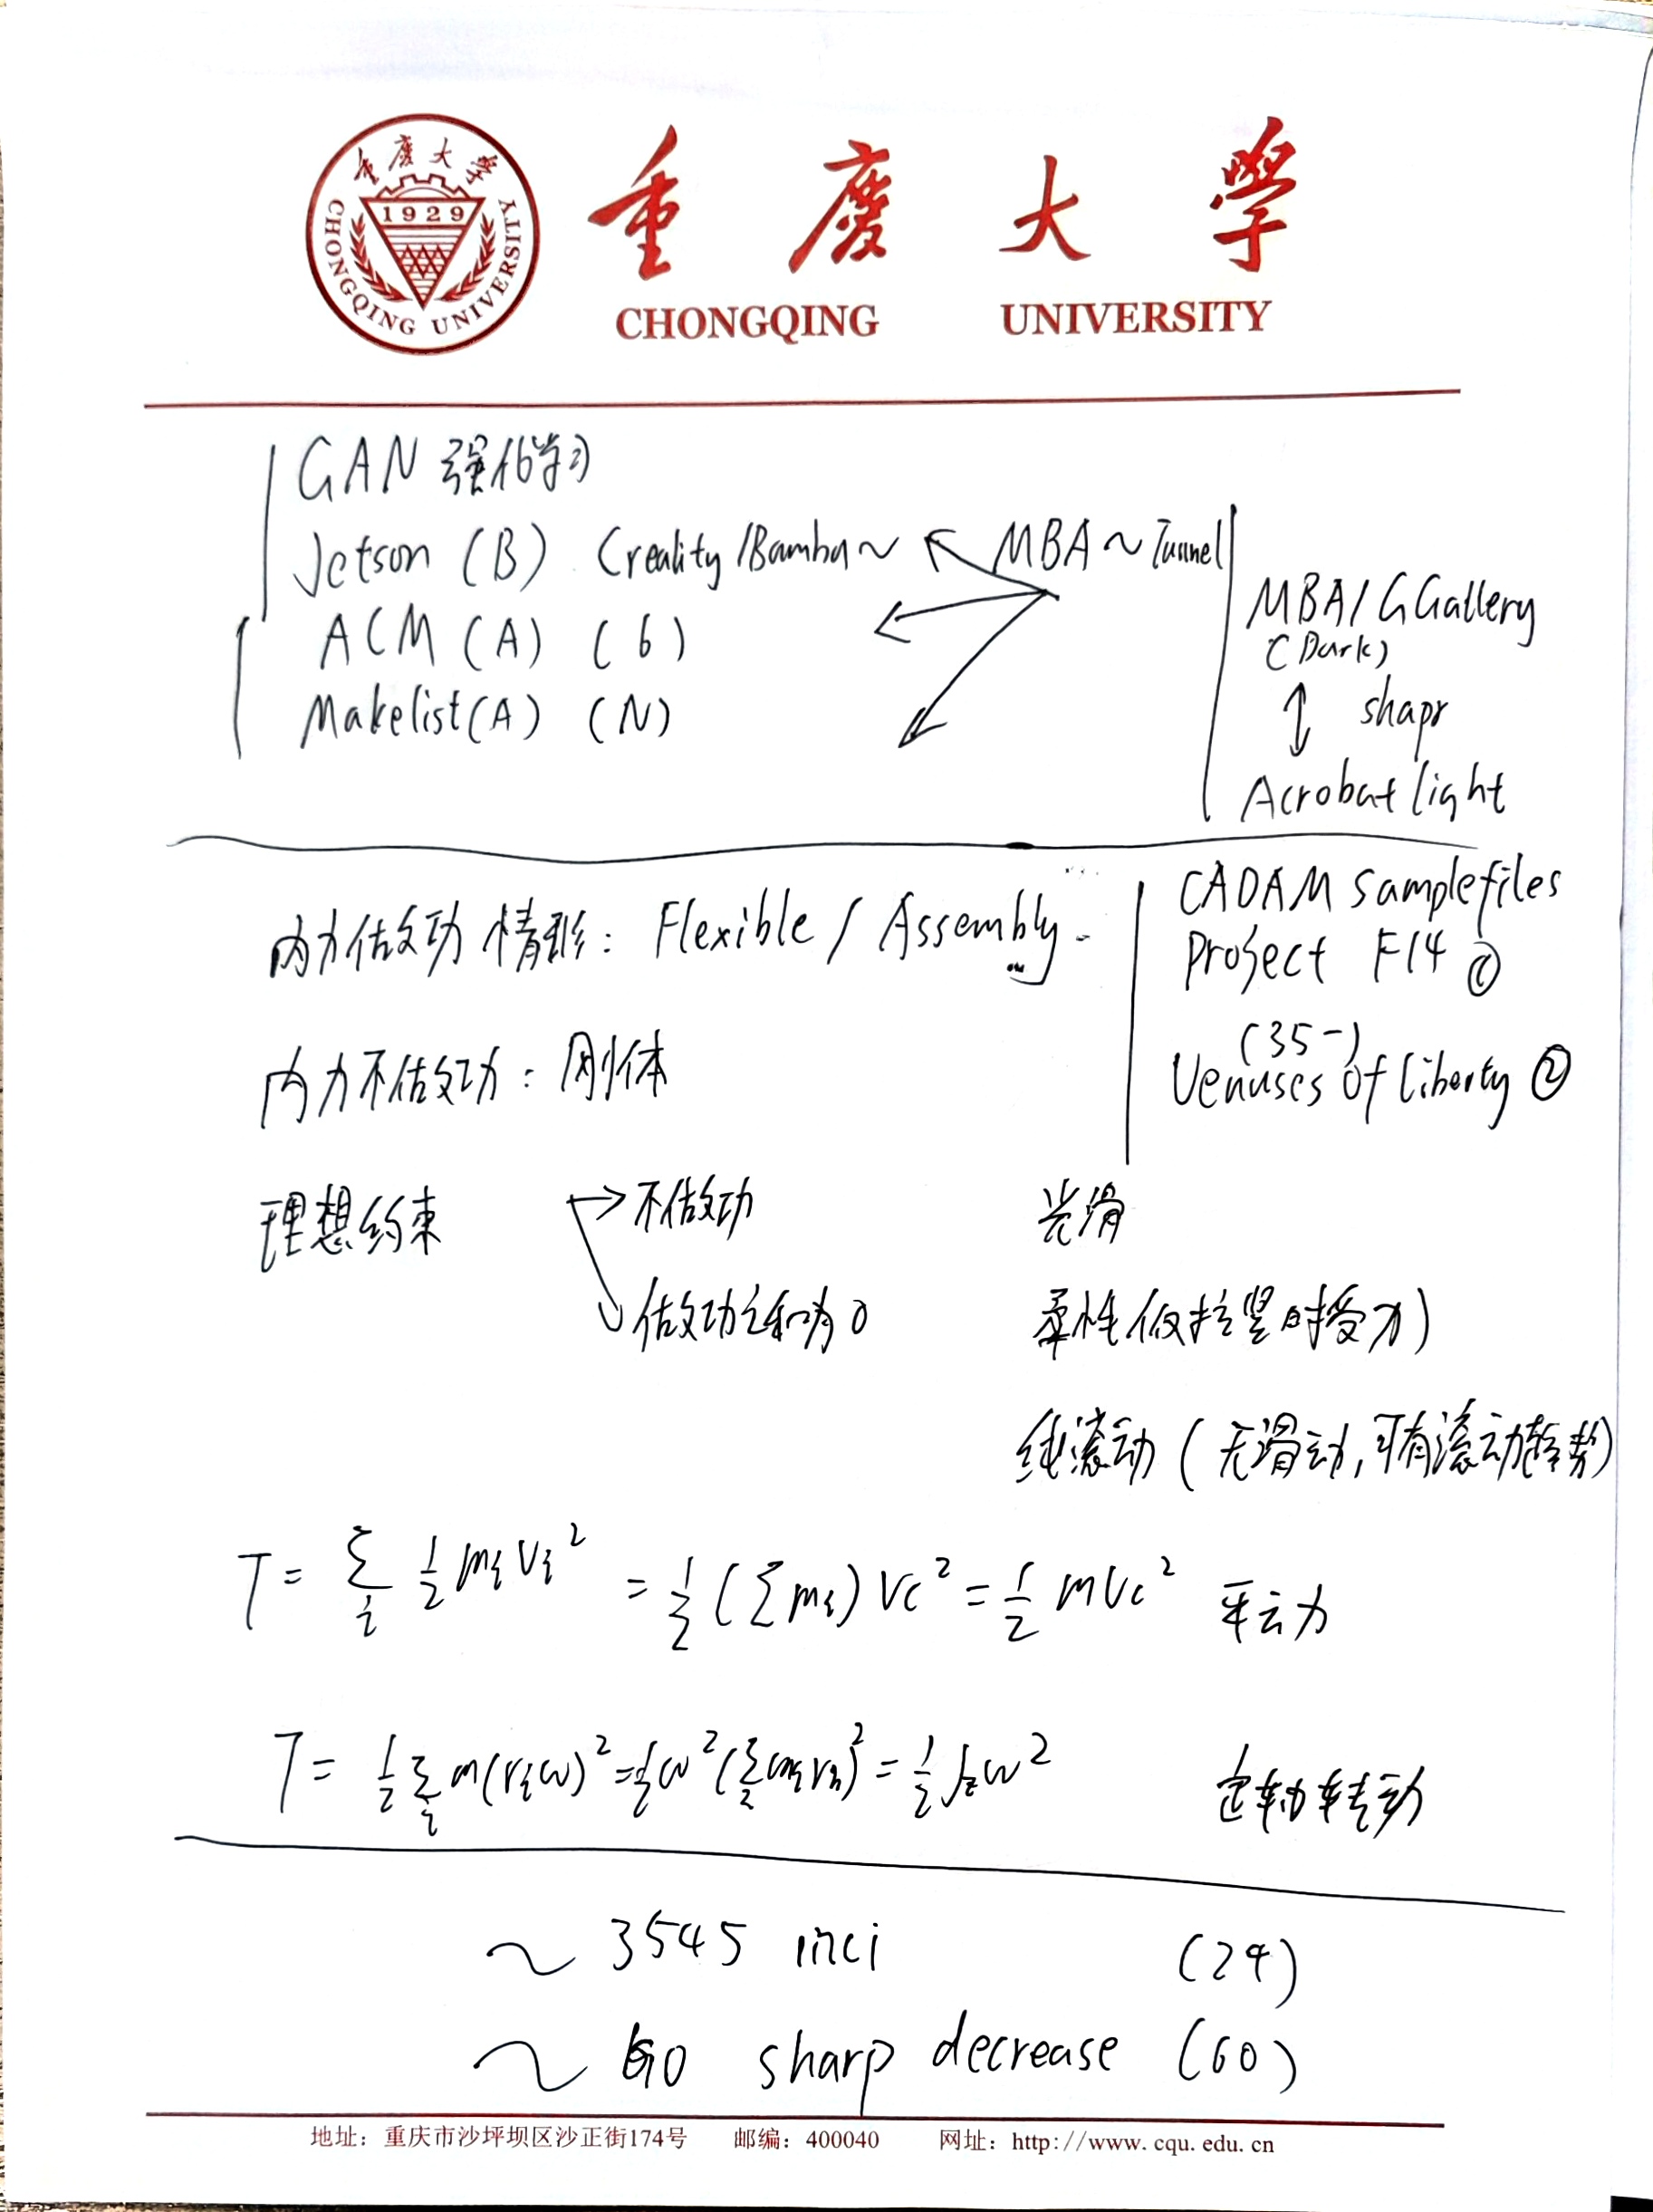 重慶大學
1929
CHONGQING UNIVERSITY
重慶大學
CHONGQING UNIVERSITY
GAN 强化学习
Jetson (B) Creality /Bamba~ MBA ~ Tunnel
ACM (A) (6)
Makelist(A) (N)
MBA/GGallery
(Dark)
shapr
Acrobat light
内力做功情形: Flexible / Assembly
内力不做功: 刚体
CADAM samplefiles
Project F14 ①
(35-)
Venuses of liberty ②
理想约束 不做功 光滑
做功之和为0 柔性(仅拉紧时受力)
纯滚动 (无滑动,可有滚动趋势)
T = Σi 1/2 mi Vi² = 1/2 (Σmi) Vc² = 1/2 mVc² 平动
T = 1/2 Σi m(riω)² = 1/2 ω² (Σ mi ri)² = 1/2 Jzω² 定轴转动
~ 3545 inci (24)
~ GO sharp decrease (60)
地址: 重庆市沙坪坝区沙正街174号 邮编: 400040 网址: http://www.cqu.edu.cn